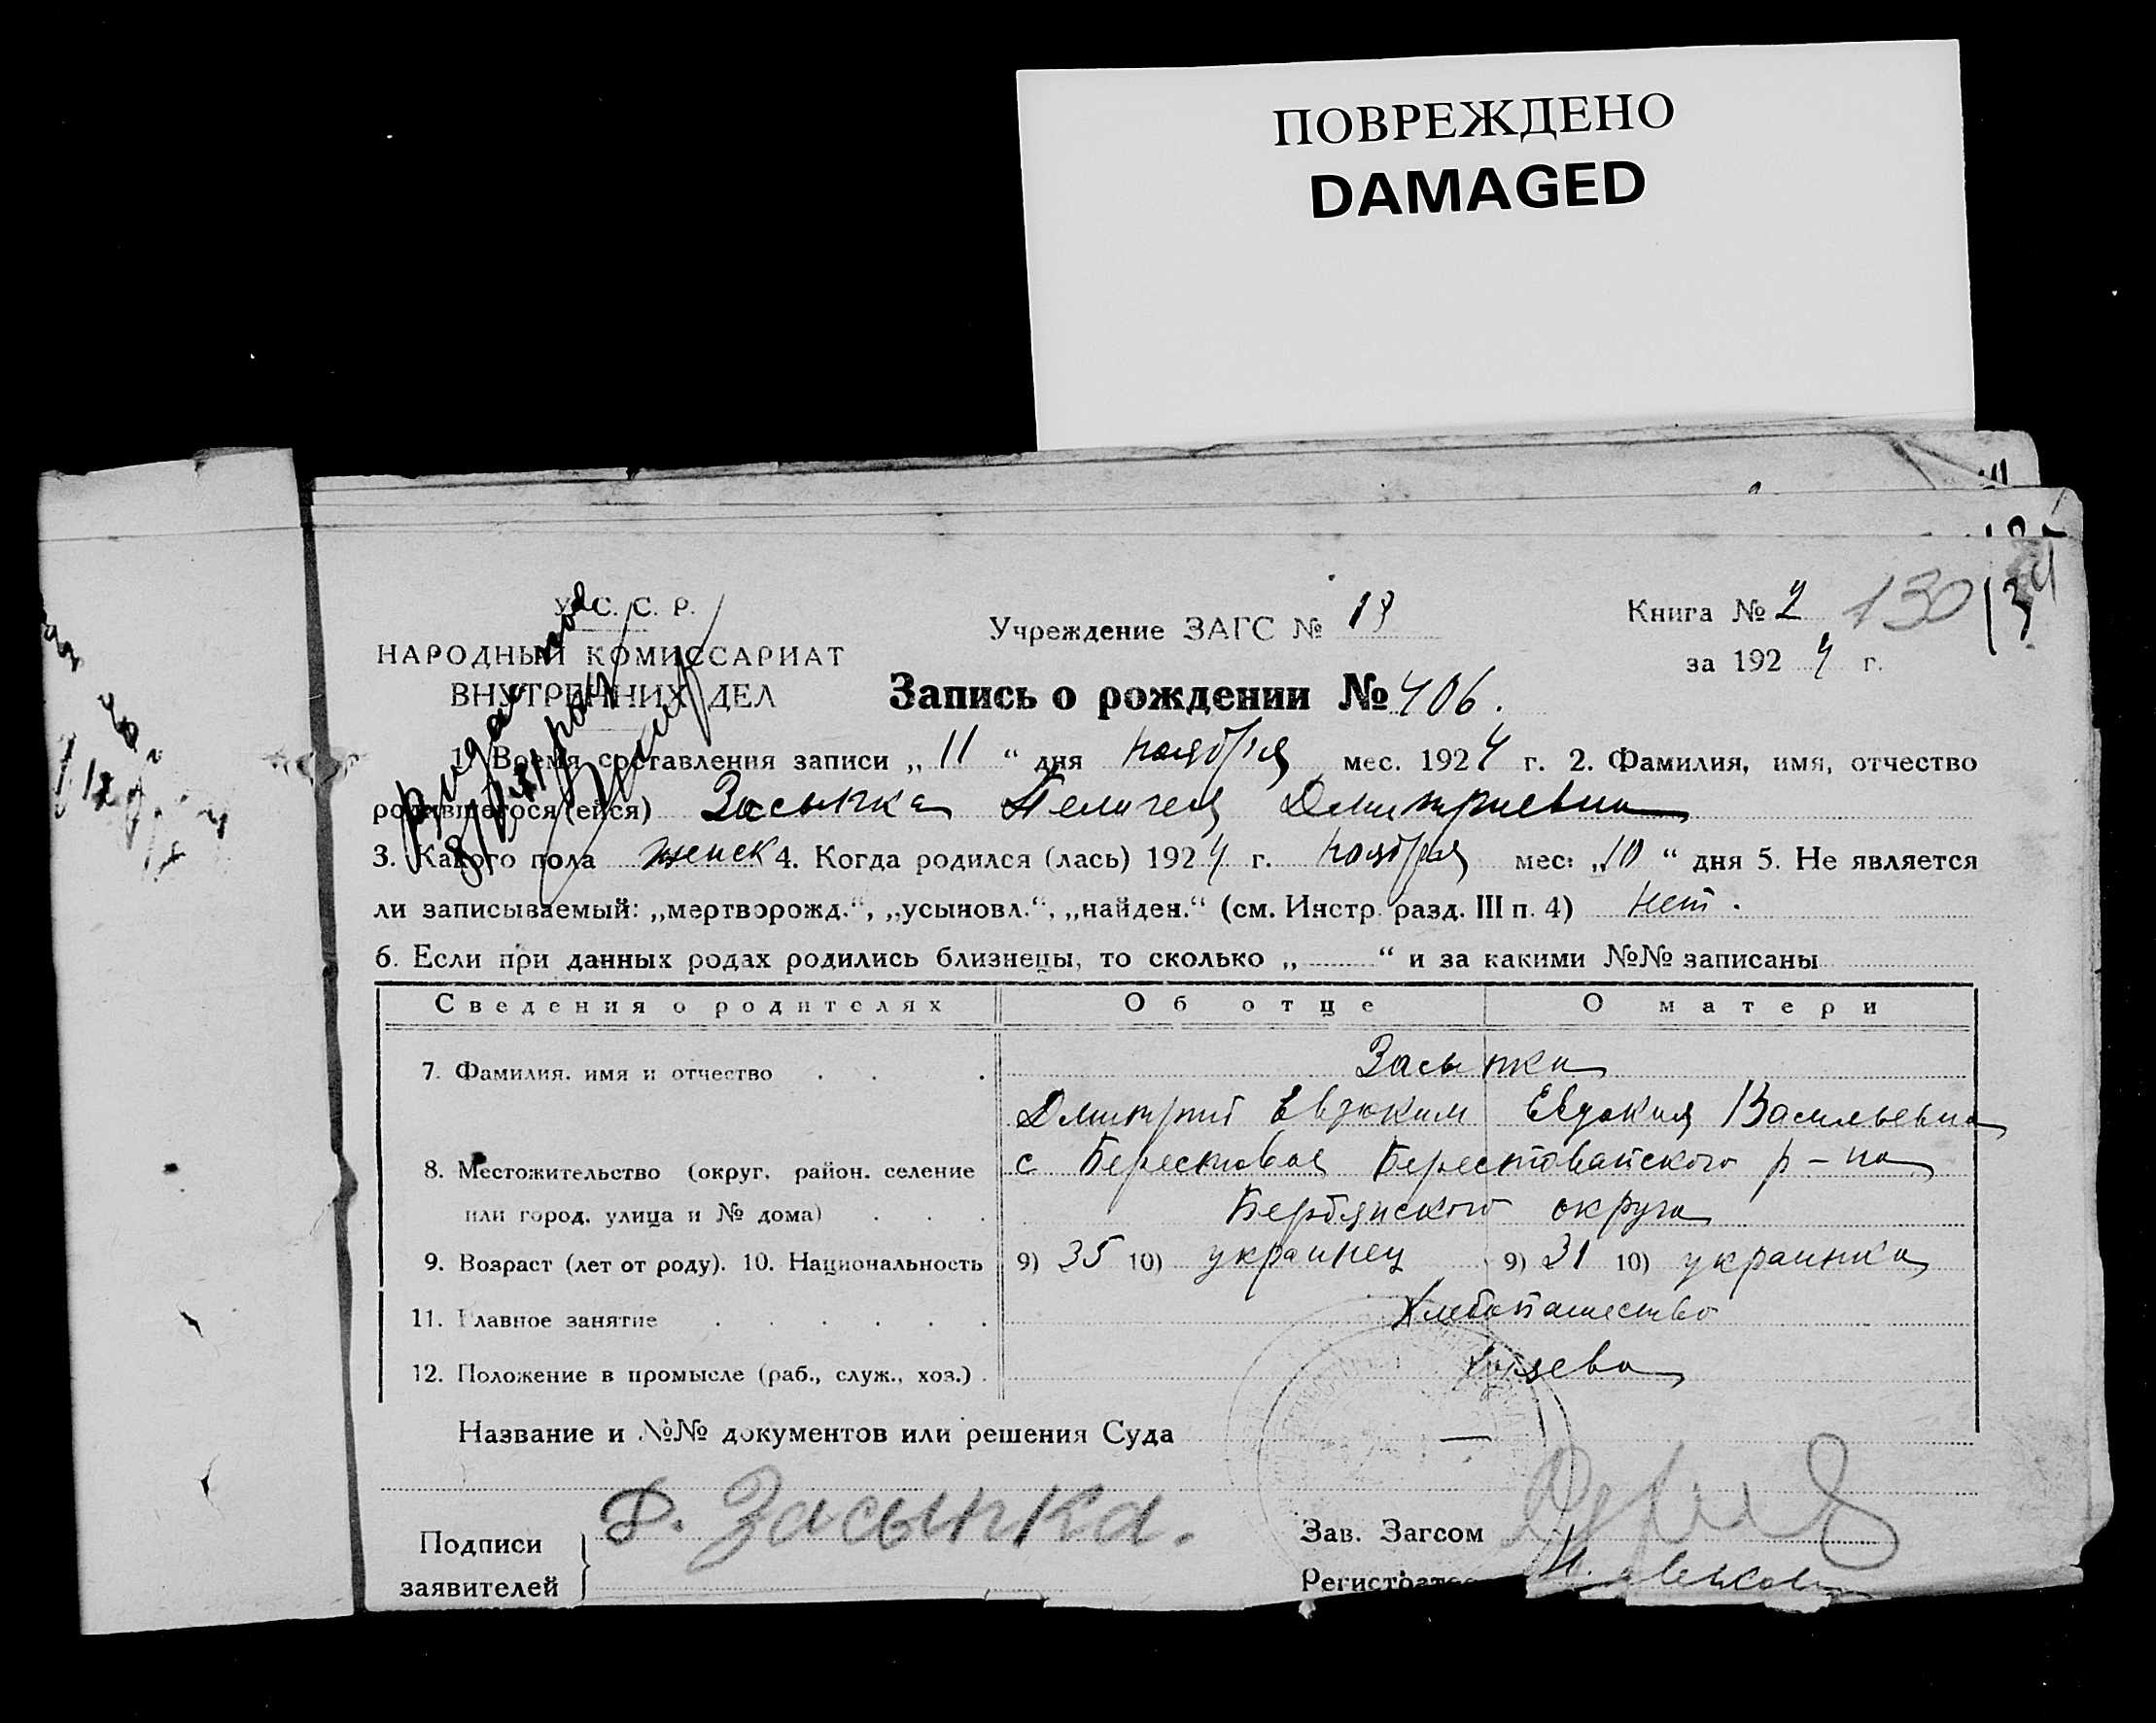 ПОВРЕЖДЕНО
DAMAGED
У. С. С. Р.
НАРОДНЫЙ КОМИССАРИАТ
ВНУТРЕННИХ ДЕЛ
Учреждение ЗАГС № 19
Книга № 2 130
за 1924 г.
Запись о рождении № 406.
1. Время составления записи „ 11 “ дня ноября мес. 1924 г. 2. Фамилия, имя, отчество
родившегося (ейся) Засыпка Пелагея Дмитриевна
3. Какого пола женск 4. Когда родился (лась) 1924 г. ноября мес: „10 “ дня 5. Не является
ли записываемый: „мертворожд.“, „усыновл.“, „найден.“ (см. Инстр. разд. III п. 4) нет.
6. Если при данных родах родились близнецы, то сколько „ “ и за какими №№ записаны
Сведения о родителях Об отце О матери
7. Фамилия, имя и отчество Засыпка
Дмитрий Евдоким Евдокия Васильевна
8. Местожительство (округ, район, селение с Берестовая Берестовайского р-на
или город, улица и № дома) Бердянского округа
9. Возраст (лет от роду). 10. Национальность 9) 35 10) украинец 9) 31 10) украинка
11. Главное занятие Хлебопашество
12. Положение в промысле (раб., служ., хоз.) хозяева
Название и №№ документов или решения Суда —
Подписи заявителей Д. Засыпка.
Зав. Загсом